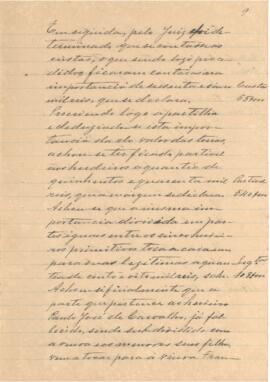 9
Em seguida, pelo Juiz foi de-
terminado que se contassem
custas, o que sendo logo pro-
cedido ficaram contas na
importancia de sessenta e cinco
mil reis, que se declara.
Procedendo logo a partilha
e deduzindo-se esta impor-
tancia do valor das terras,
achou-se ter ficado partivel
aos herdeiros a quantia de
quinhentos quarenta mil
reis, que a margem se declara
Achou-se que a mesma im-
portancia dividida em par-
tes iguaes entre os cinco herdei-
ros primitivos tocava a cada um
para suas legitimas a quan-
tia de cento e oito mil reis,
Achou-se finalmente que a
parte que pertencer ao herdeiro
Paulo José de Carvalho, já fal-
lecido, sendo subdividida com
a viuva e os menores seus filhos,
vem a tocar para á viuva Fran-
Custas
65$000
540$000
108$000